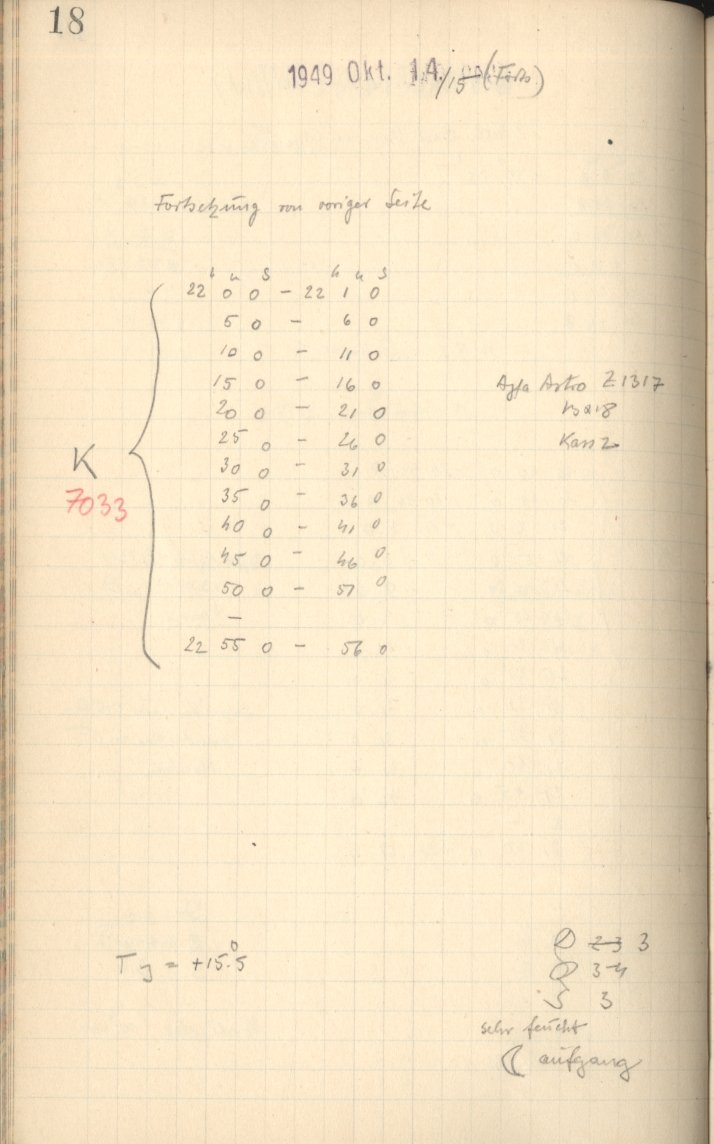 18
1949 Okt. 14./15 (Forts)
Fortsetzung von voriger Seite
h m s h m s
22 0 0 - 22 1 0
5 0 - 6 0
10 0 - 11 0
15 0 - 16 0
20 0 - 21 0
25 0 - 26 0
30 0 - 31 0
35 0 - 36 0
40 0 - 41 0
45 0 - 46 0
50 0 - 51 0
–
22 55 0 - 56 0
K
7033
Agfa Astro Z1317
Kass 2
T = +15.°5
2-3 3
3-4
3
sehr feucht
☾ aufgang